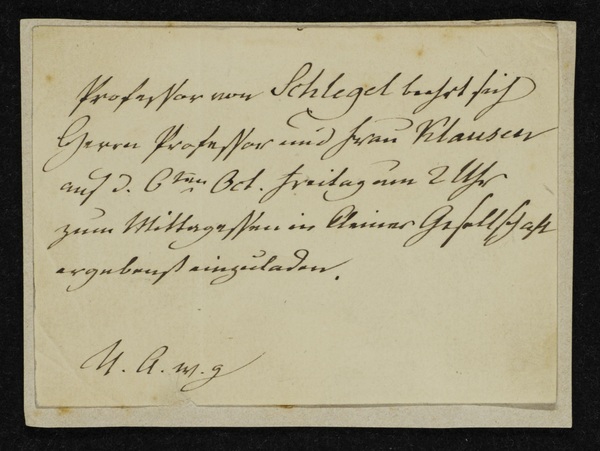 Professor von Schlegel beehrt sich
Herrn Professor und Frau Klausen
auf d. 6ten Oct. Freitag um 2 Uhr
zum Mittagessen in kleiner Gesellschaft
ergebenst einzuladen.
U. A. w. g